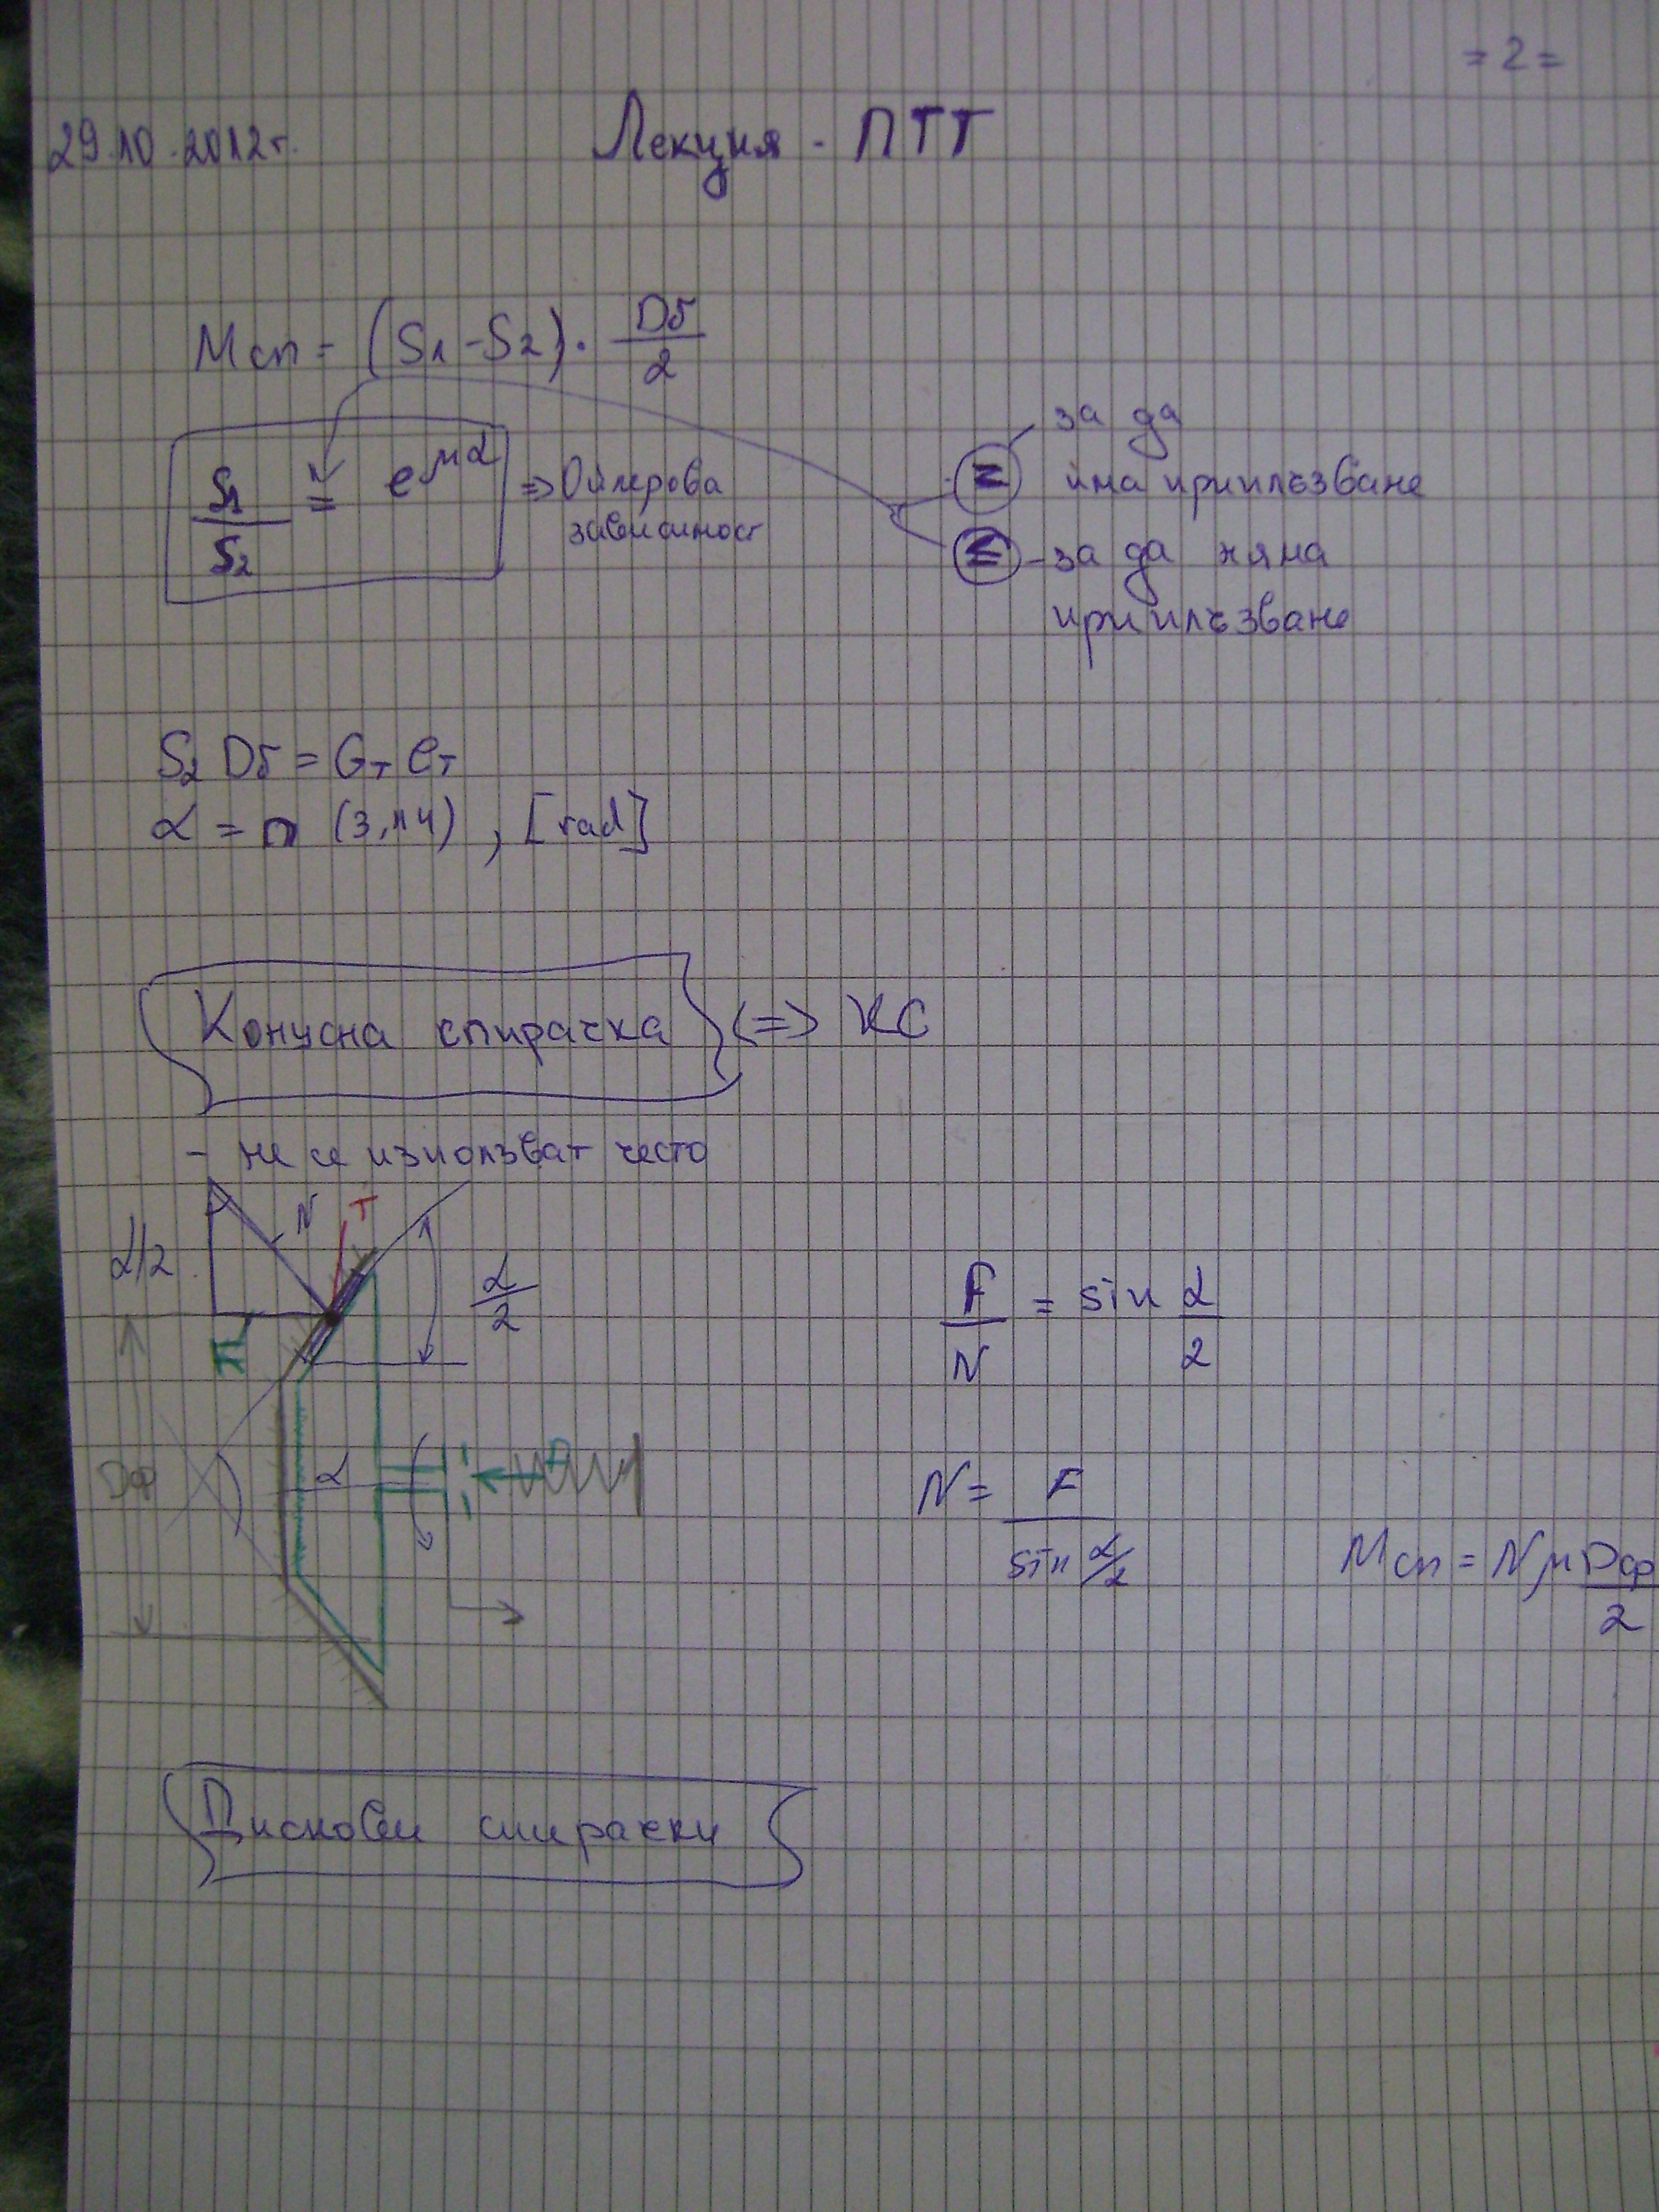 = 2 =
29.10.2012г. Лекция - ПТТ
Mсп = (S1 - S2) . Dб/2
S1/S2 = e^μα => Ойлерова зависимост
≥ за да има приплъзване
≤ - за да няма приплъзване
S2 Dб = Gт eт
α = π (3,14) , [rad]
Конусна спирачка <=> КС
- не се използват често
α/2 N T
α/2
F
Dср α
F/N = sin α/2
N = F / sin α/2
Mсп = N μ Dср/2
Дискови спирачки